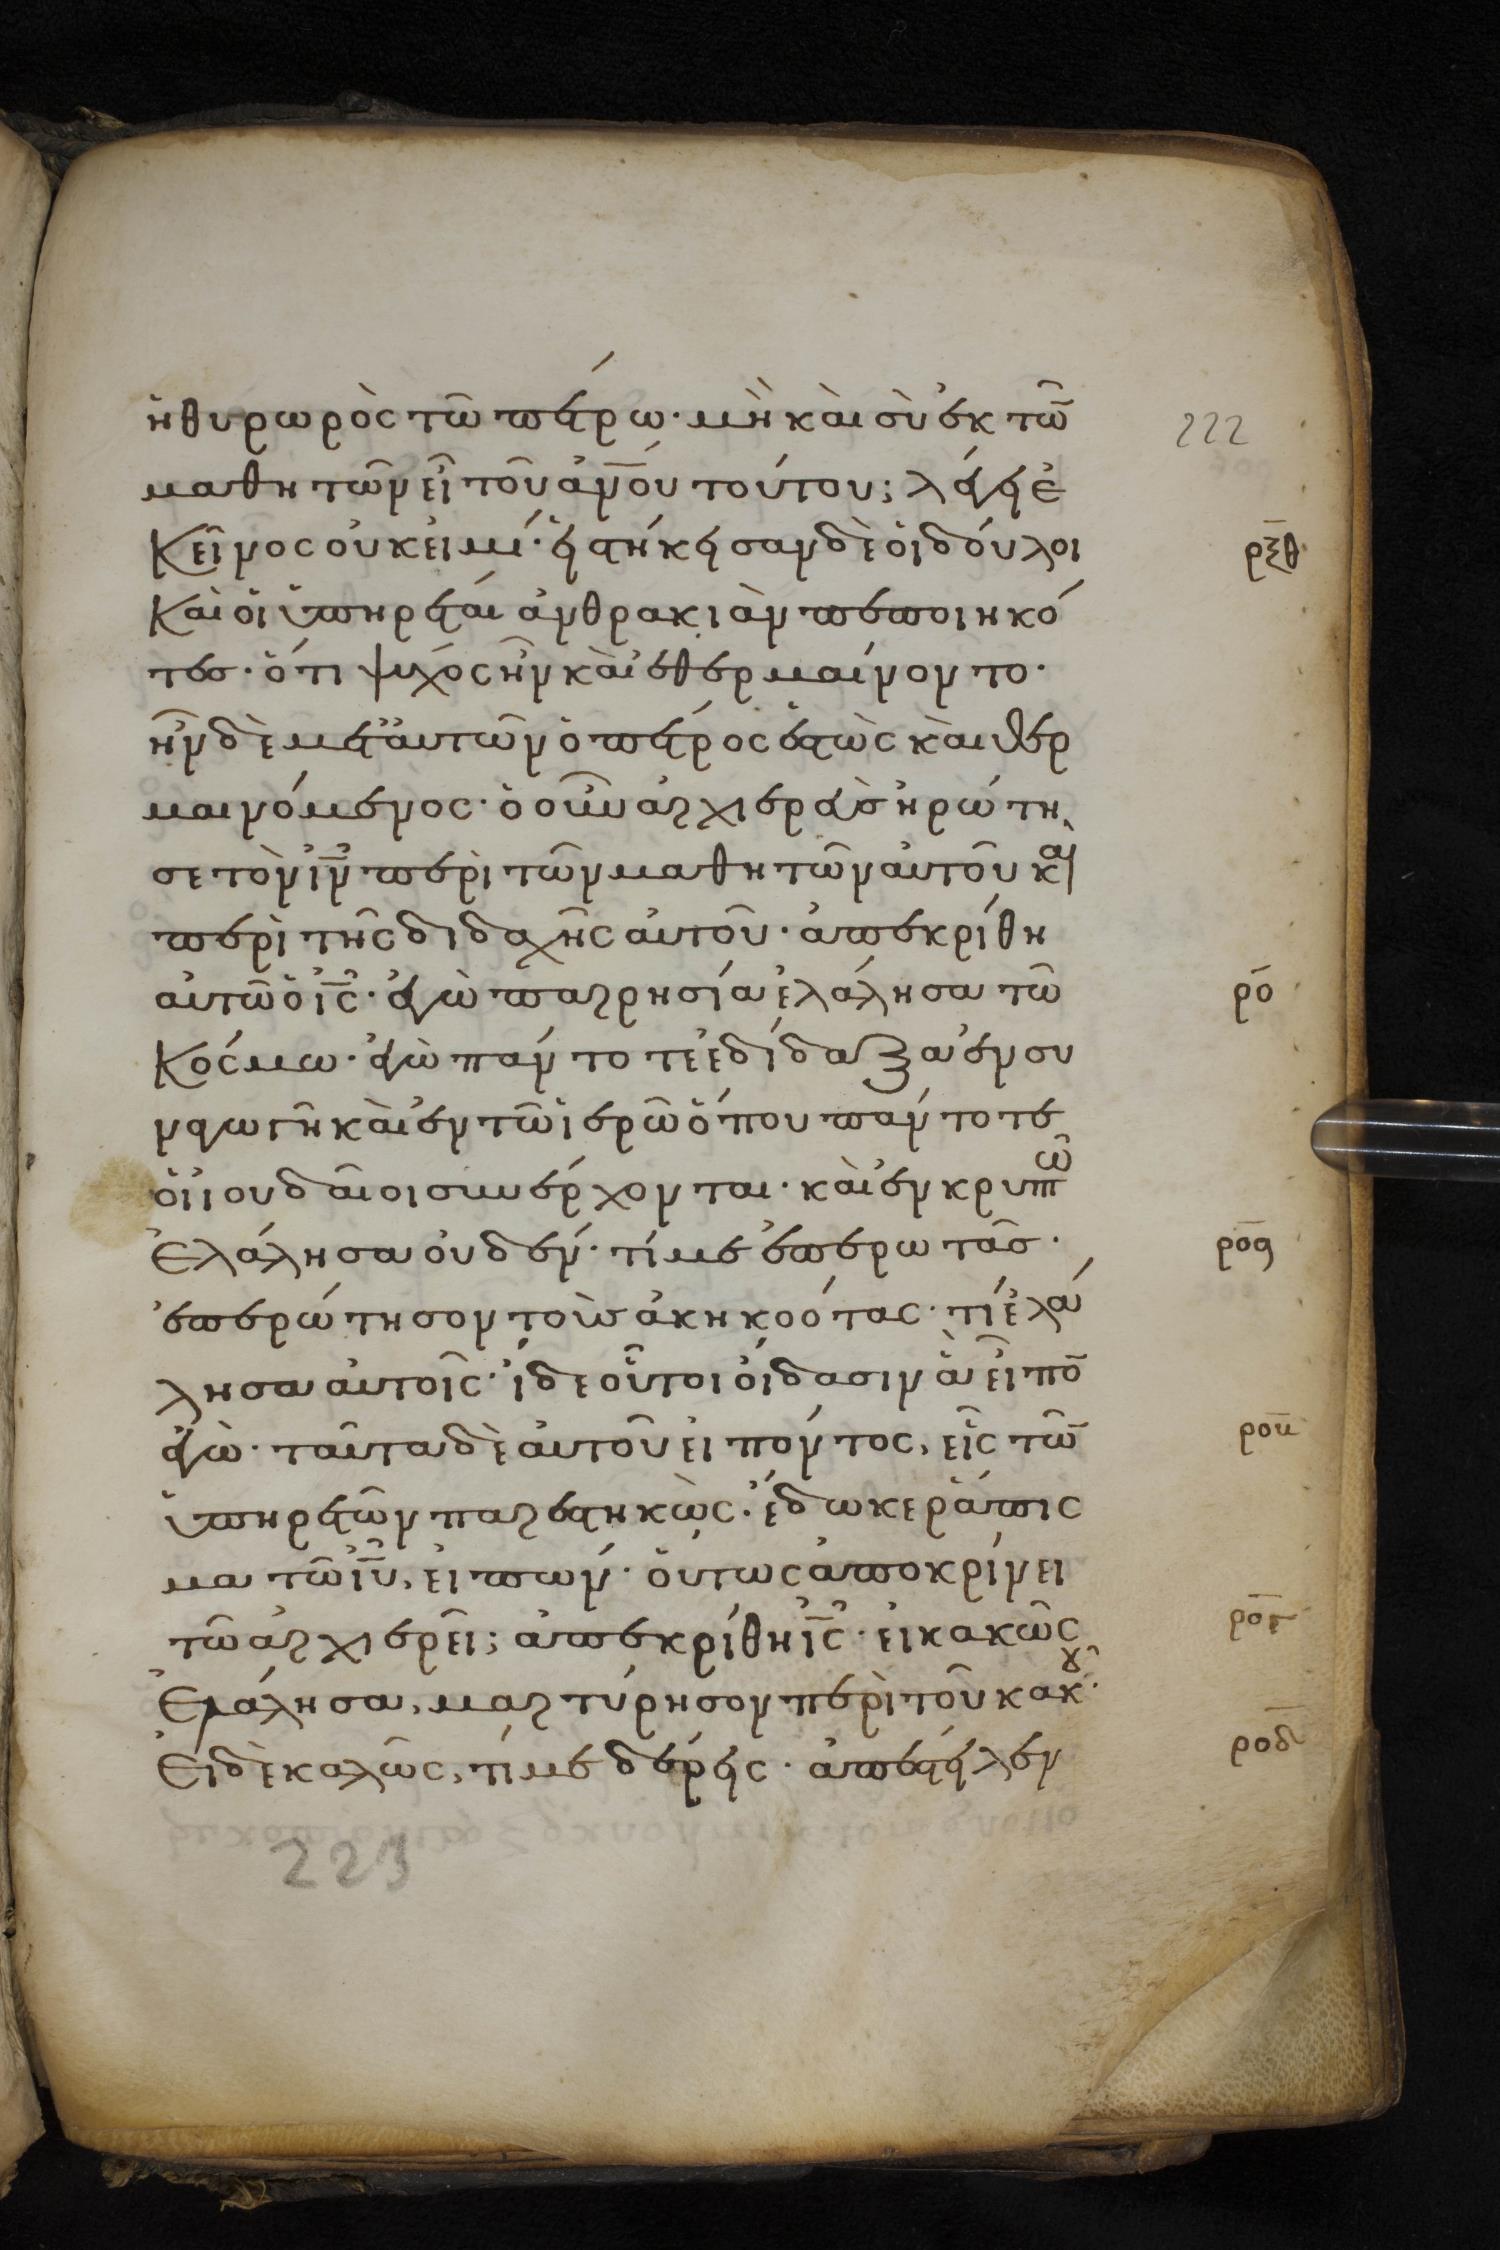 ἡ θυρωρὸς τῶ πέτρω· μὴ καὶ σὺ ἐκ τῶ̅
222
μαθητῶν εἶ τοῦ ἀν̅ου τούτου; λέγει ἐ
κεῖνος οὐκ εἰμί· εἱστήκεισαν δὲ οἱ δοῦλοι
ρξθ
καὶ οἱ ὑπηρέται ἀνθρακιὰν πεποιηκό
τες· ὅτι ψύχος ἦν καὶ ἐθερμαίνοντο·
ἦν δὲ μετ' αὐτῶν ὁ πέτρος ἑστὼς καὶ θερ
μαινόμενος· ὁ οὖν ἀρχιερεὺς ἠρώτη
σε τὸν ι̅ν̅ περὶ τῶν μαθητῶν αὐτοῦ καὶ
περὶ τῆς διδαχῆς αὐτοῦ· ἀπεκρίθη
αὐτῶ ὁ ι̅ς̅· ἐγὼ παρρησία ἐλάλησα τῶ
ρο
κόσμω· ἐγὼ πάντοτε ἐδίδαξα ἐν συ
ναγωγῆ καὶ ἐν τῶ ἱερῶ ὅπου πάντοτε
οἱ ἰουδαῖοι συνέρχονται· καὶ ἐν κρυπτῶ
ἐλάλησα οὐδέν· τί με ἐπερωτᾶς·
ροα
ἐπερώτησον τοὺς ἀκηκοότας· τί ἐλά
λησα αὐτοῖς· ἴδε οὗτοι οἴδασιν ἃ εἶπο̅
ἐγὼ· ταῦτα δὲ αὐτοῦ εἰπόντος, εἷς τῶ̅
ροβ
ὑπηρετῶν παρεστηκὼς· ἔδωκε ῥάπισ
μα τῶ ι̅υ̅, εἰπών· οὕτως ἀποκρίνει
τῶ ἀρχιερεῖ; ἀπεκρίθη ι̅ς̅· εἰ κακῶς
ρογ
ἐλάλησα, μαρτύρησον περὶ τοῦ κακοῦ·
εἰ δὲ καλῶς, τί με δέρεις· ἀπέστειλεν
ροδ
223